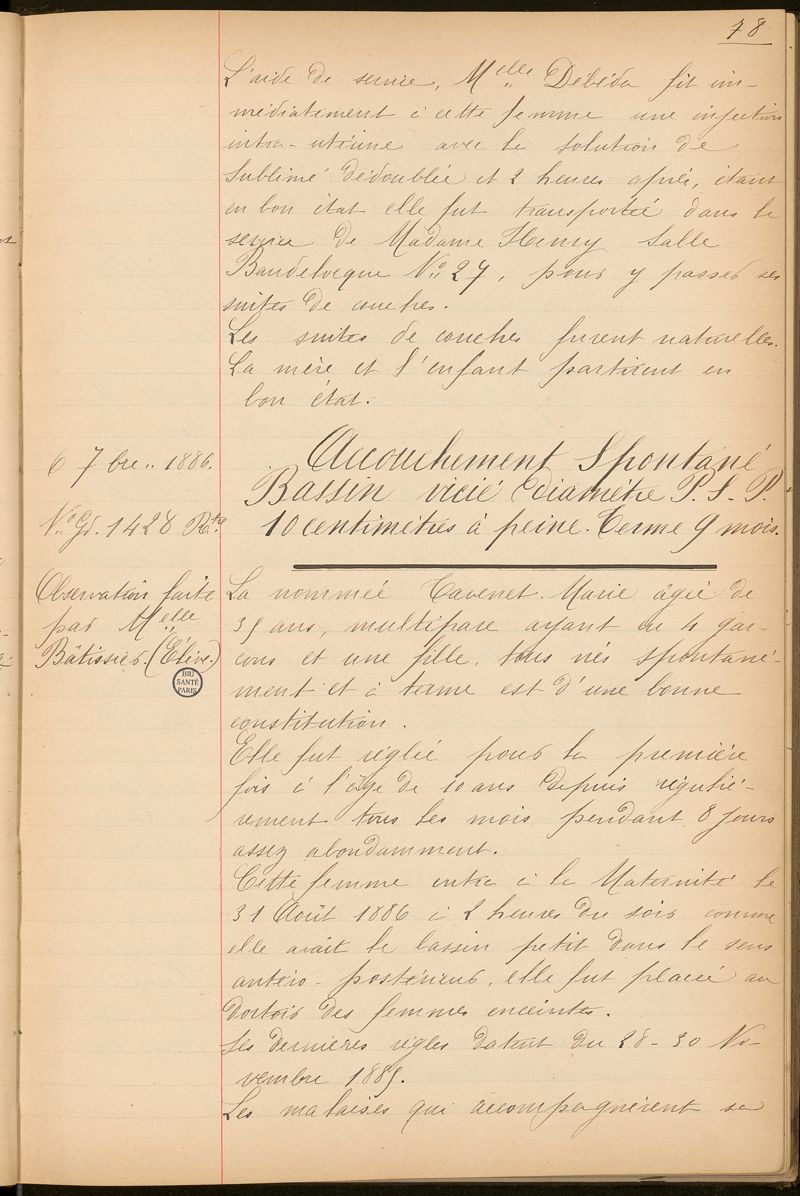 78
L'aide de service, Melle Debéda fit im-
médiatement à cette femme une injection
intra-utérine avec la solution de
Sublimé dédoublée et 2 heures après, étant
en bon état elle fut transportée dans le
service de Madame Henry Salle
Baudelocque No 27, pour y passer ses
suites de couches.
Les suites de couches furent naturelles.
La mère et l'enfant partirent en
bon état.
6 7bre 1886.
No Gl. 1428 Rtre
Accouchement Spontané
Bassin vicié Diamètre P.S.P.
10 centimètres à peine. Terme 9 mois.
Observation faite
par Melle
Bâtissier (Elève.)
BIU
SANTÉ
PARIS
La nommée Tavenet Marie âgée de
35 ans, multipare ayant eu 4 gar-
çons et une fille, tous nés spontané-
ment et à terme est d'une bonne
constitution.
Elle fut réglée pour la première
fois à l'âge de 10 ans depuis réguliè-
rement tous les mois pendant 8 jours
assez abondamment.
Cette femme entra à la Maternité le
31 Août 1886 à 2 heures du soir comme
elle avait le bassin petit dans le sens
antéro-postérieur, elle fut placée au
dortoir des femmes enceintes.
Ses dernières règles datent du 28-30 No-
vembre 1885.
Les malaises qui accompagnèrent sa